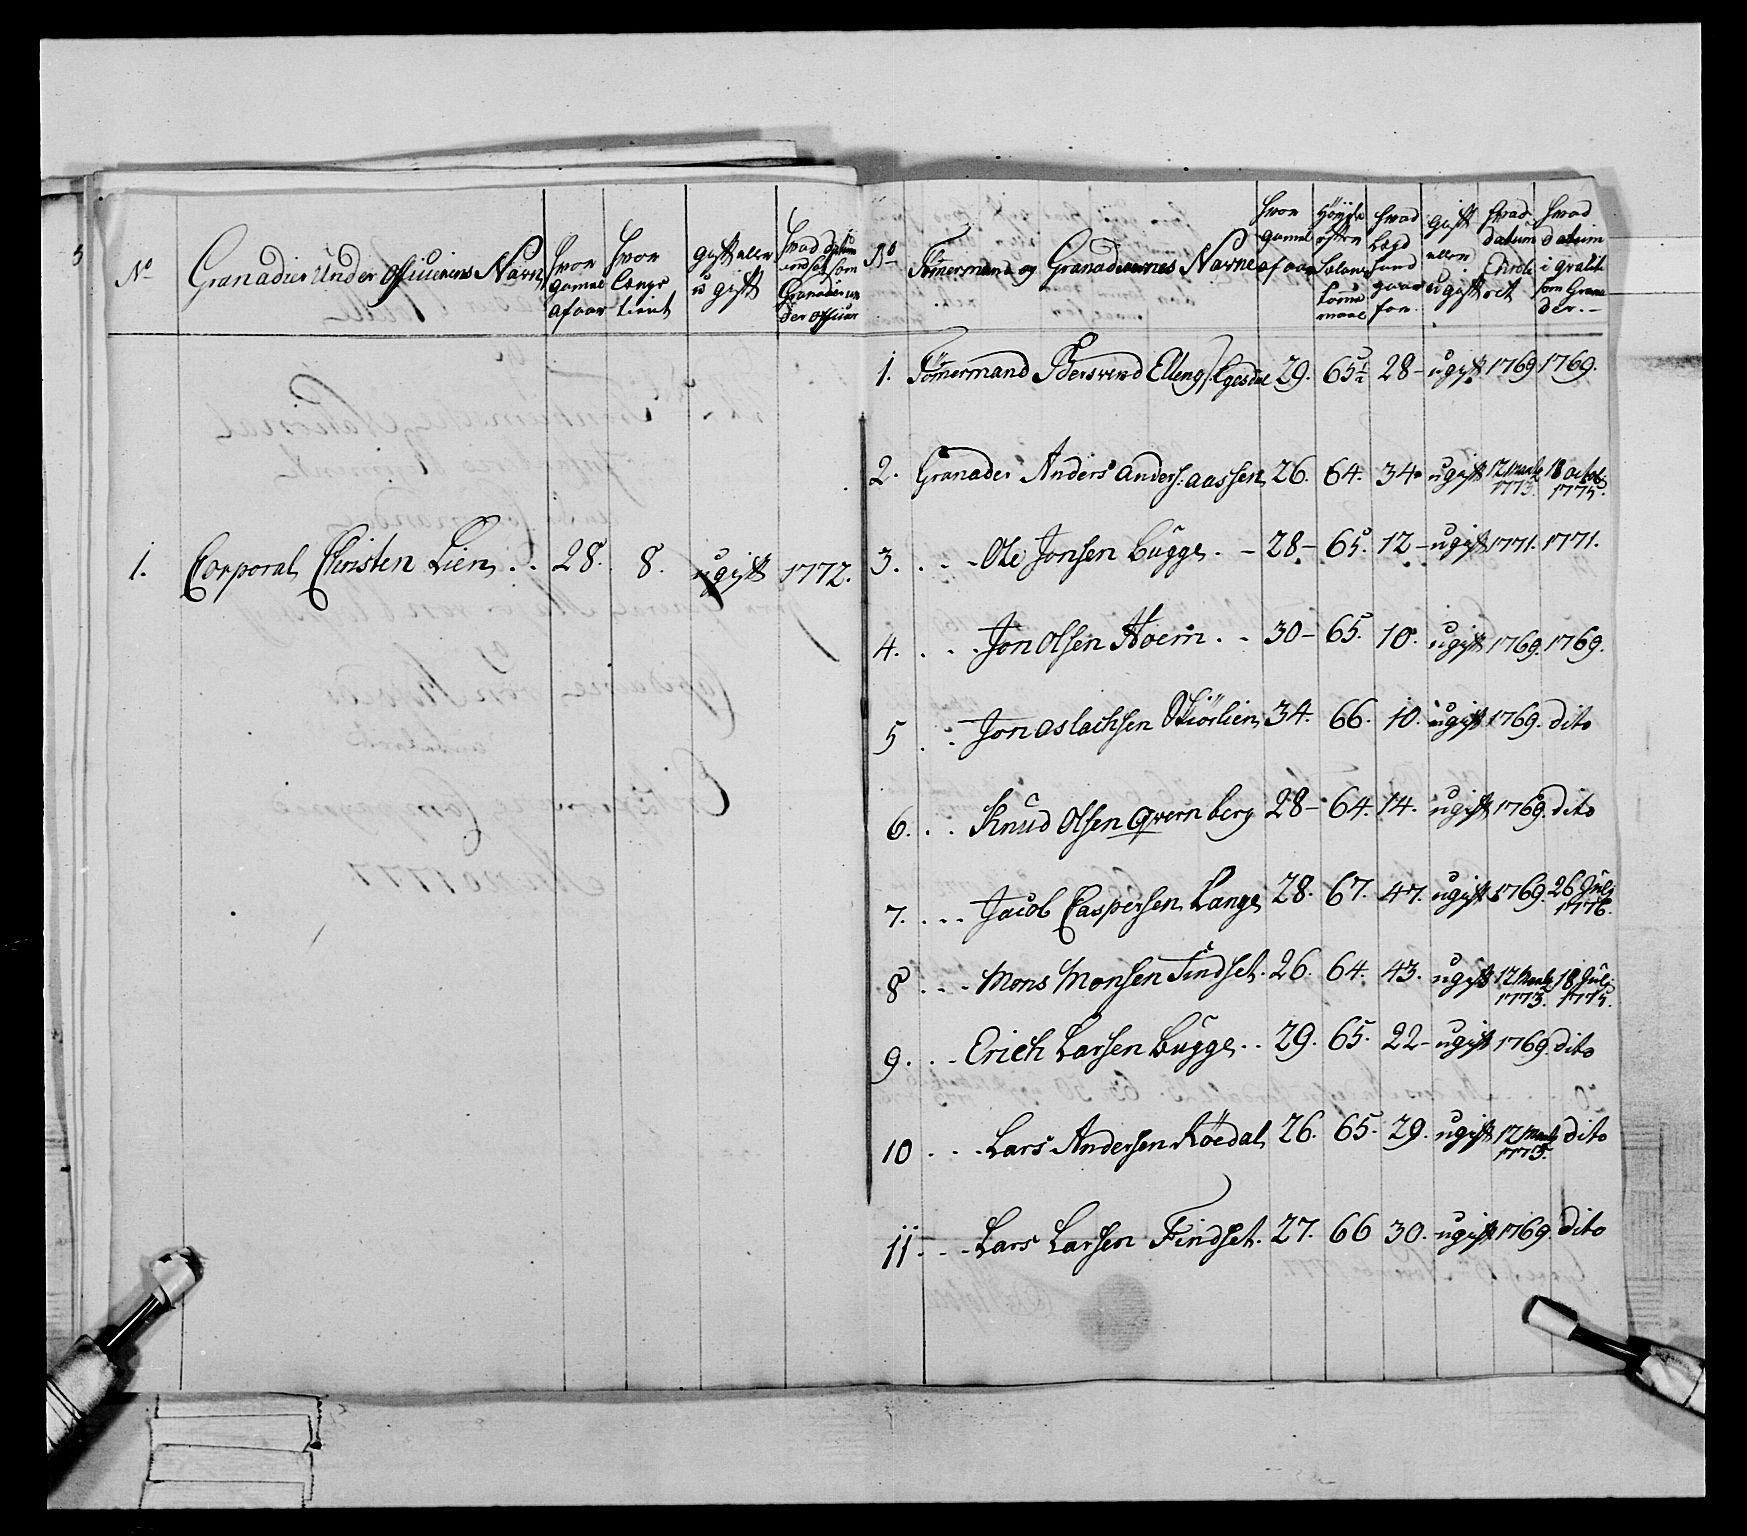 No
Granadier Under Officierens Navn
hvor gamel af aar
hvor lenge tient
gift eller ugift
hvad datum
Granadier un
der officier
1. Corporal Christen Lien . . 28. 8. ugift 1772.
No
Tömermand og Granaderernes Navne
hvor gamel af aar
Höyde efter
maal
hvad Lægd hand gaar for
Gift eller ugift
hvad datum Enrolleret
hvad datum
som Grana
der. —
1. Tömermand Bersvend Elleng 29. 65½ 28 - ugift 1769 1769.
2. Granader Anders Anders: Aassen 26. 64. 34. ugift 12 Martz 1773. 18 octob 1775.
3. . . . Ole Jonsen Bugge . - 28 - 65. 12 - ugift 1771. 1771.
4. . . . Jon Olsen Hoem . - 30 - 65. 10. ugift 1769. 1769.
5 . . Jon Aslachsen Skiörlien 34. 66. 10. ugift 1769. dito
6. . . Knud Olsen Qvernberg 28 - 64. 14. ugift 1769. dito
7. . . . Jacob Caspersen Lange 28. 67. 47. ugift 1769. 26 Juli 1776.
8 . . . Mons Monsen Findset. 26. 64. 43. ugift 12 Martz 1773. 18 Juli 1775.
9. . . Erich Larsen Bugge . . 29. 65. 22 - ugift 1769. dito
10 . . . Lars Andersen Röedal 26. 65. 29. ugift 12 Martz 1773. dito
11 . . . Lars Larsen Findset. 27. 66 30. ugift 1769. dito